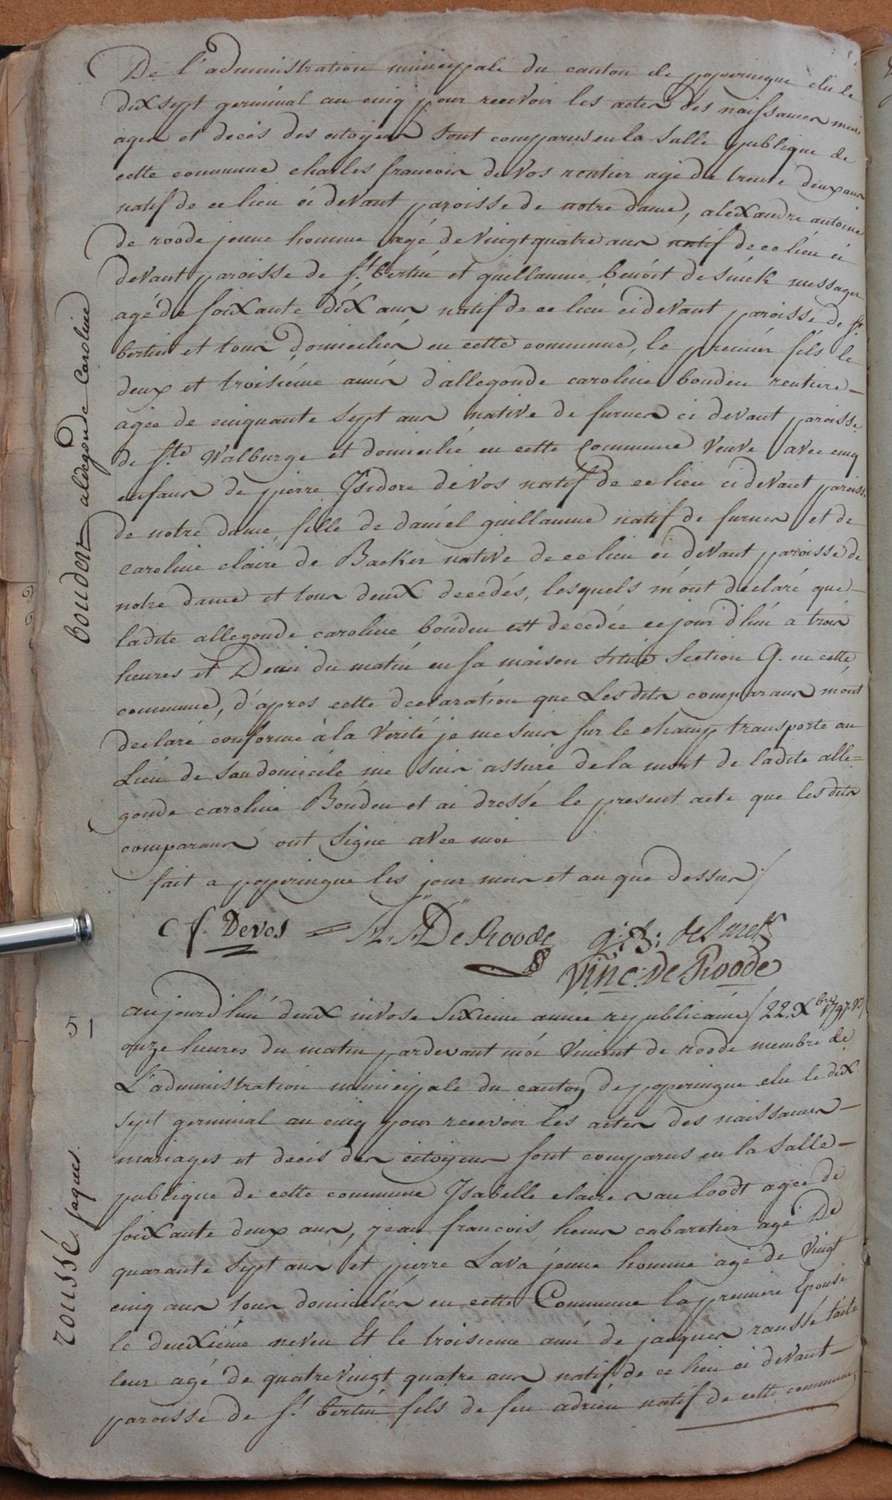 De l'administration municipale du canton de poperingue elu le
dix sept germinal an cinq pour recevoir les actes des naissances mari
ages et decès des citoyens sont comparus en la salle publique de
cette commune charles francois de vos rentier agé de trente deux ans
natif de ce lieu ci devant paroisse de notre dame, alexandre antoine
de roode jeune homme agé de vingt quatre ans natif de ce lieu ci
devant paroisse de st bertin et guillaume benoit de messager
agé de soixante dix ans natif de ce lieu ci devant paroisse de st
bertin et tous domiciliés en cette commune, le premier fils le
deux et troisième amis d'allegonde caroline boudeu rentiere
agée de cinquante sept ans native de furnes ci devant paroisse
de ste Walburge et domiciliée en cette commune veuve avec cinq
enfans de pierre Isidore de vos natif de ce lieu ci devant paroisse
de notre dame, fille de daniel guillaume natif de furnes et de
caroline claire de Backer native de ce lieu ci devant paroisse de
notre dame et tous deux decedés, lesquels m'ont declaré que
ladite allegonde caroline boudeu est decedée ce jour d'hui a trois
heures et Demi du matin en sa maison située Section G. en cette
commune, d'apres cette declaration que Les dits comparans m'ont
declaré conforme à la Verité je me suis sur le champ transporte au
Lieu de son domicile me suis assuré de la mort de ladite alle-
gonde caroline Boudeu et ai dressé le present acte que les dits
comparans ont signe avec moi
fait a poperingue les jour mois et an que dessus /
boudert aldegonde Caroline
C f. Devos = A. A. De Roode g: b: de smet
Vinc. De Roode
51
aujourd'hui deux nivose Sixieme année republicaine / 22. Xbre 1797 /
onze heures du matin pardevant moi Vincent de roode membre de
L'administration municipale du canton de poperingue elu le dix
sept germinal an cinq pour recevoir les actes des naissances
mariages et decès des citoyens sont comparus en la salle
publique de cette commune Ysabelle claire van loodt agée de
soixante deux ans, jean francois cabaretier agé De
quarante sept ans et pierre Lava jeune homme agé de Vingt
cinq ans tous domiciliés en cette Commune la premiere Epouse
le deuxième neveu Et le troisieme ami de jacques roussé tail
leur agé de quatrevingt quatre ans natif de ce lieu ci devant
paroisse de st bertin fils de feu adrien natif de cette commune
roussé. jaques.